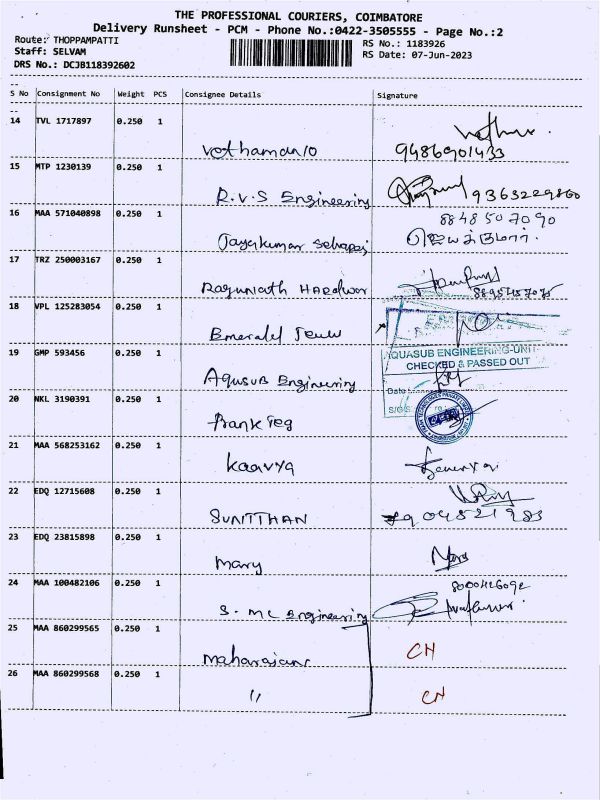 THE PROFESSIONAL COURIERS, COIMBATORE
Delivery Runsheet - PCM - Phone No.:0422-3505555 - Page No.:2
Route: THOPPAMPATTI
RS No.: 1183926
Staff: SELVAM
RS Date: 07-Jun-2023
DRS No.: DCJB118392602
S No Consignment No Weight PCS Consignee Details Signature
14 TVL 1717897 0.250 1
9486901433
15 MTP 1230139 0.250 1
R.V.S Engineering 9363229860
16 MAA 571040898 0.250 1 8848507090
Jayakumar ஜெயக்குமார்.
17 TRZ 250003167 0.250 1
Ragunath Hardwar
18 VPL 125283054 0.250 1
Emerald
19 GMP 593456 0.250 1 AQUASUB ENGINEERING-UNIT
CHECKED & PASSED OUT
AquSUB Engineering
Date
20 NKL 3190391 0.250 1
Prank Teg
21 MAA 568253162 0.250 1
Kaavya
22 EDQ 12715608 0.250 1
SUNITTHAN
23 EDQ 23815898 0.250 1
Mary
24 MAA 100482106 0.250 1 8000426092
S. MC Engineering
25 MAA 860299565 0.250 1
Maharajans CH
26 MAA 860299568 0.250 1
" CH